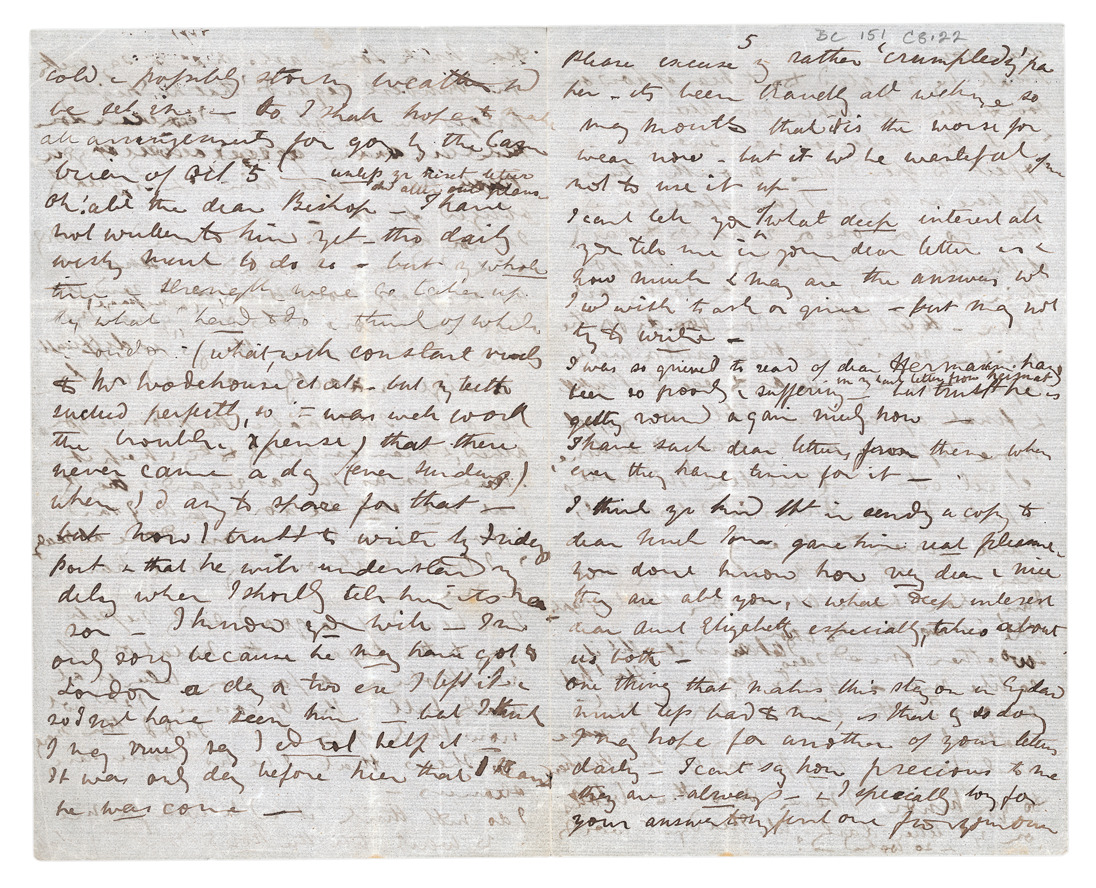 cold & possibly stormy weather
be set in — so I shall hope to make
all arrangements for going by the
of Oct 5 — unless yr next letter
alter our plans
Oh! abt the dear Bishop — I have
not written to him yet — tho daily
meant to do so — but my whole
time & strength were so taken up
by what I had to do & think of while
in London — (what with constant
to Mr Woodehouse, et cet — but my teeth
perfectly, so it was well worth
the trouble & xpense) that there
never came a day (ever Sundays)
when I'd any to spare for that —
but now I trust to write by Friday's
Post & that he will understand my
delay when I shortly tell him its rea
son — I know you will — I'm
only sorry because he may have got to
London a day or two ere I left it &
so I mt have seen him — but I think
I may truly say I cd not help it —
It was only day before that I
he was come —
BC 151 C8.22
5
Please excuse my rather 'crumpled' pa
per — its been travelling all with me so
many months that it is the worse for
wear now — but it wd be wasteful of me
not to use it up —
I cant tell you what deep interest all
you tell me in your dear letter is &
how much & many are the answers wh
I wd wish to ask or give — but may not
try to write —
I was so grieved to read of dear Hermann having
been so poorly & suffering — but trust he is
in my last letter from
getting round again nicely now —
I have such dear letters from them when
ever they have time for it —
I think yr kind tht in sending a copy to
dear Uncle gave him real pleasure,
you dont know how very dear & nice
they are abt you, & what deep interest
dear Aunt Elizabeth especially, takes about
us both —
One thing that makes this stay on in England
less hard to me, is that by so doing
I may hope for another of your letters
daily — I cant say how precious to me
they are always — & I specially long for
your answer to my first one fr your own